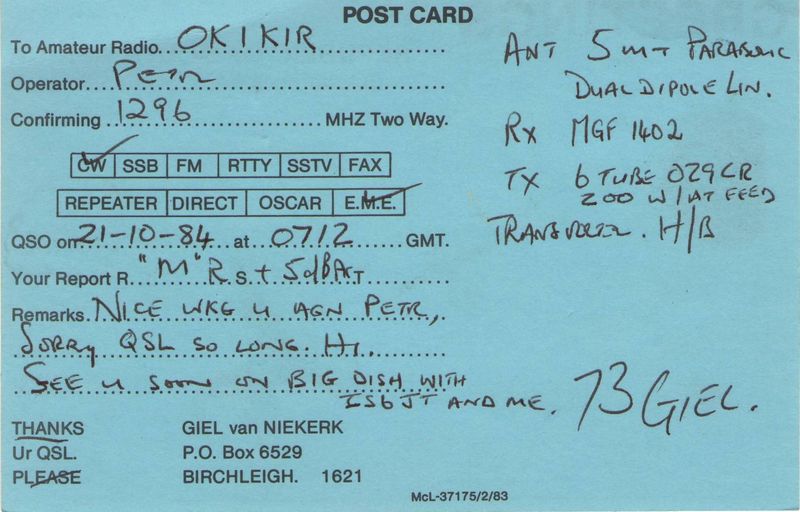 POST CARD
To Amateur Radio OK1KIR
Operator Petr
Confirming 1296 MHZ Two Way.
CW SSB FM RTTY SSTV FAX
REPEATER DIRECT OSCAR E.M.E.
QSO on 21-10-84 at 0712 GMT.
Your Report R "M" R S T 5dB
Remarks NICE WKG U AGN PETR,
SORRY QSL SO LONG. HI.
SEE U SOON ON BIG DISH WITH
ZS6JT AND ME.
THANKS
Ur QSL.
PLEASE
GIEL van NIEKERK
P.O. Box 6529
BIRCHLEIGH. 1621
McL-37175/2/83
ANT 5 MT PARABOLIC
DUAL DIPOLE LIN.
RX MGF 1402
TX 6 TUBE
200 W/AT FEED
H/B
73 GIEL.